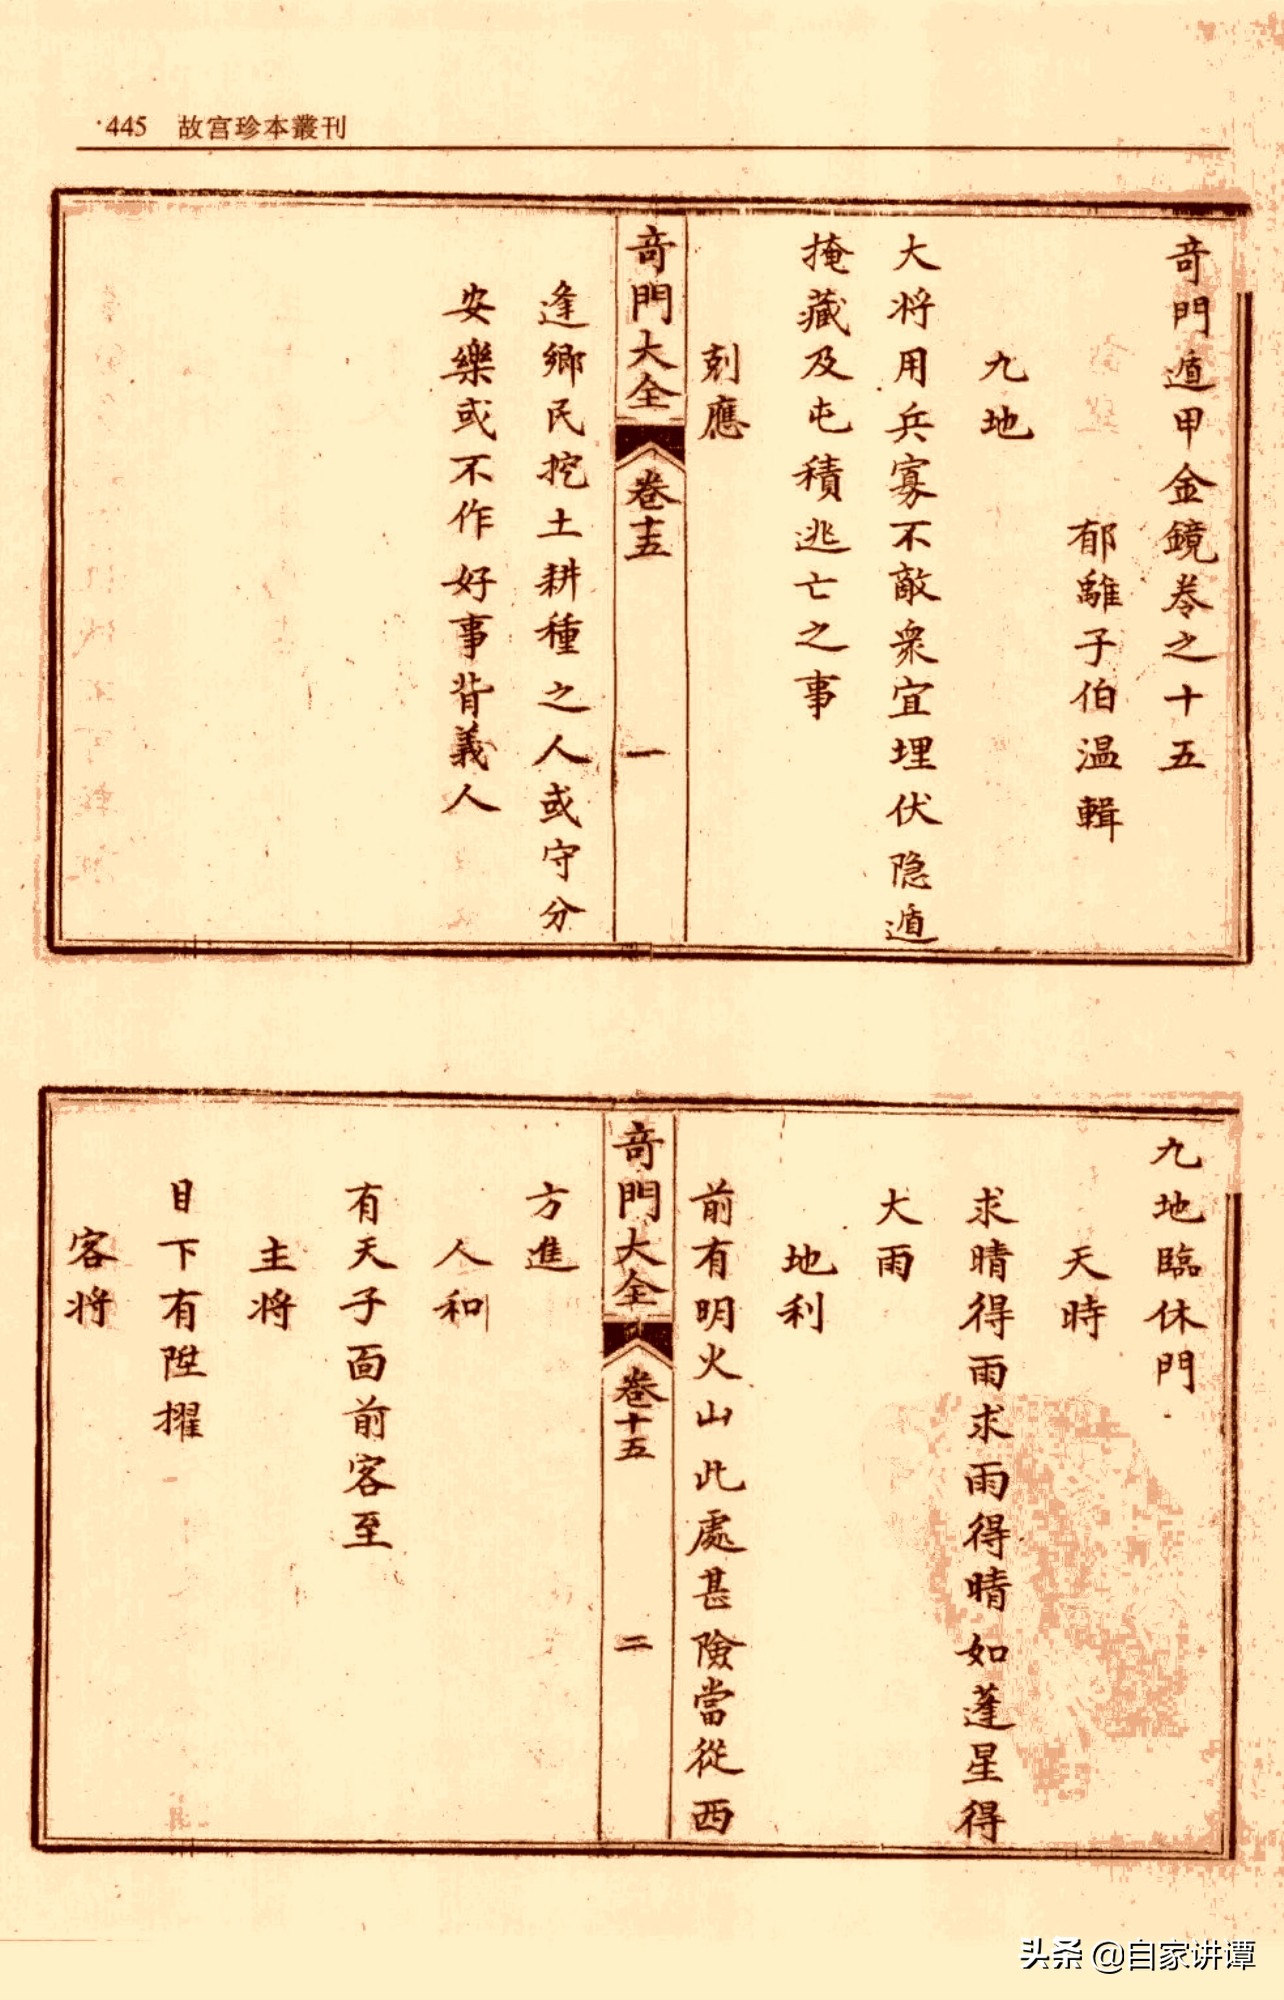 445 故宫珍本叢刊
竒門遁甲金鏡卷之十五
郁離子伯温輯
九地
大将用兵寡不敵衆宜埋伏隐遁
掩藏及屯積逃亡之事
剋應
竒門大全 卷十五 一
逢鄉民挖土耕種之人或守分
安樂或不作好事背義人
九地臨休門
天時
求晴得雨求雨得晴如蓬星得
大雨
地利
前有明火山此處甚險當從西
竒門大全 卷十五 二
方進
人和
有天子面前客至
主将
目下有陞擢
客将
头条 @自家讲谭